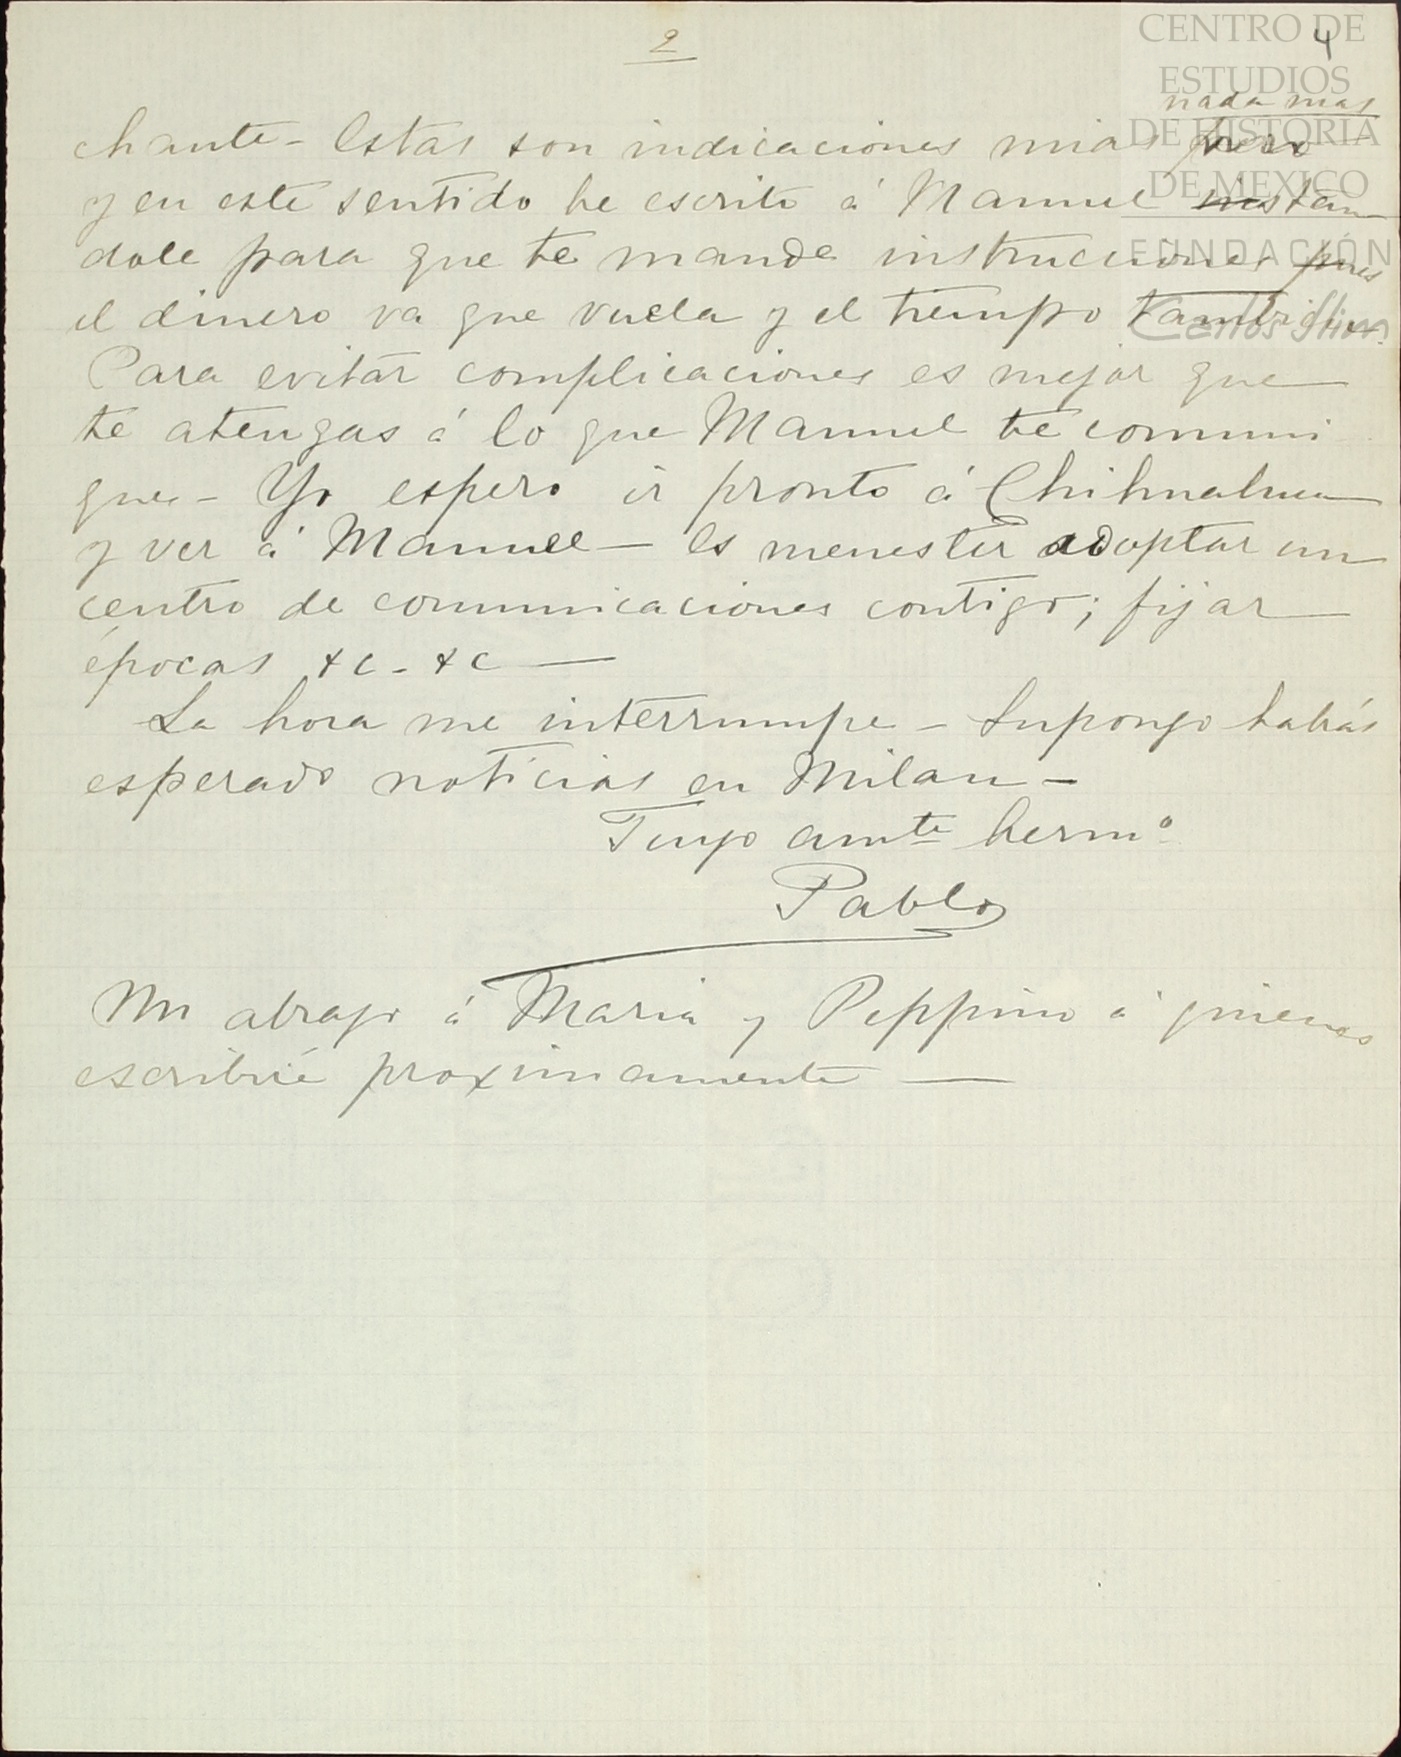 2
4
CENTRO DE
ESTUDIOS
DE HISTORIA
DE MEXICO
FUNDACIÓN
Carlos Slim
nada mas
chante - Estas son indicaciones mias pero
y en este sentido he escrito á Manuel instan
dole para que te mande instrucciones pues
el dinero va que vuela y el tiempo tambien.
Para evitar complicaciones es mejor que
te atengas á lo que Manuel te comuni
que - Yo espero ir pronto á Chihuahua
y ver á Manuel - Es menester adoptar un
centro de comunicaciones contigo; fijar
épocas &c. &c
La hora me interrumpe - Supongo habrás
esperado noticias en Milan -
Tuyo amte hermo
Pablo
Un abrazo á Maria y Peppino á quienes
escribiré proximamente